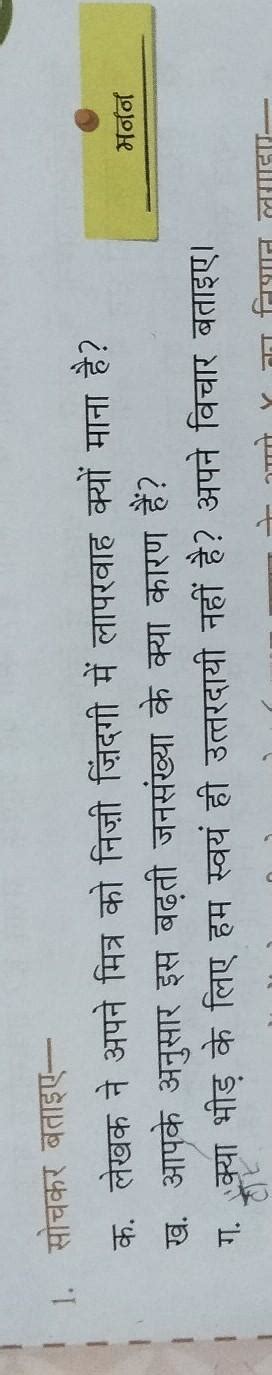 मनन
1. सोचकर बताइए—
क. लेखक ने अपने मित्र को निज़ी ज़िंदगी में लापरवाह क्यों माना है?
ख. आपके अनुसार इस बढ़ती जनसंख्या के क्या कारण हैं?
ग. क्या भीड़ के लिए हम स्वयं ही उत्तरदायी नहीं है? अपने विचार बताइए।